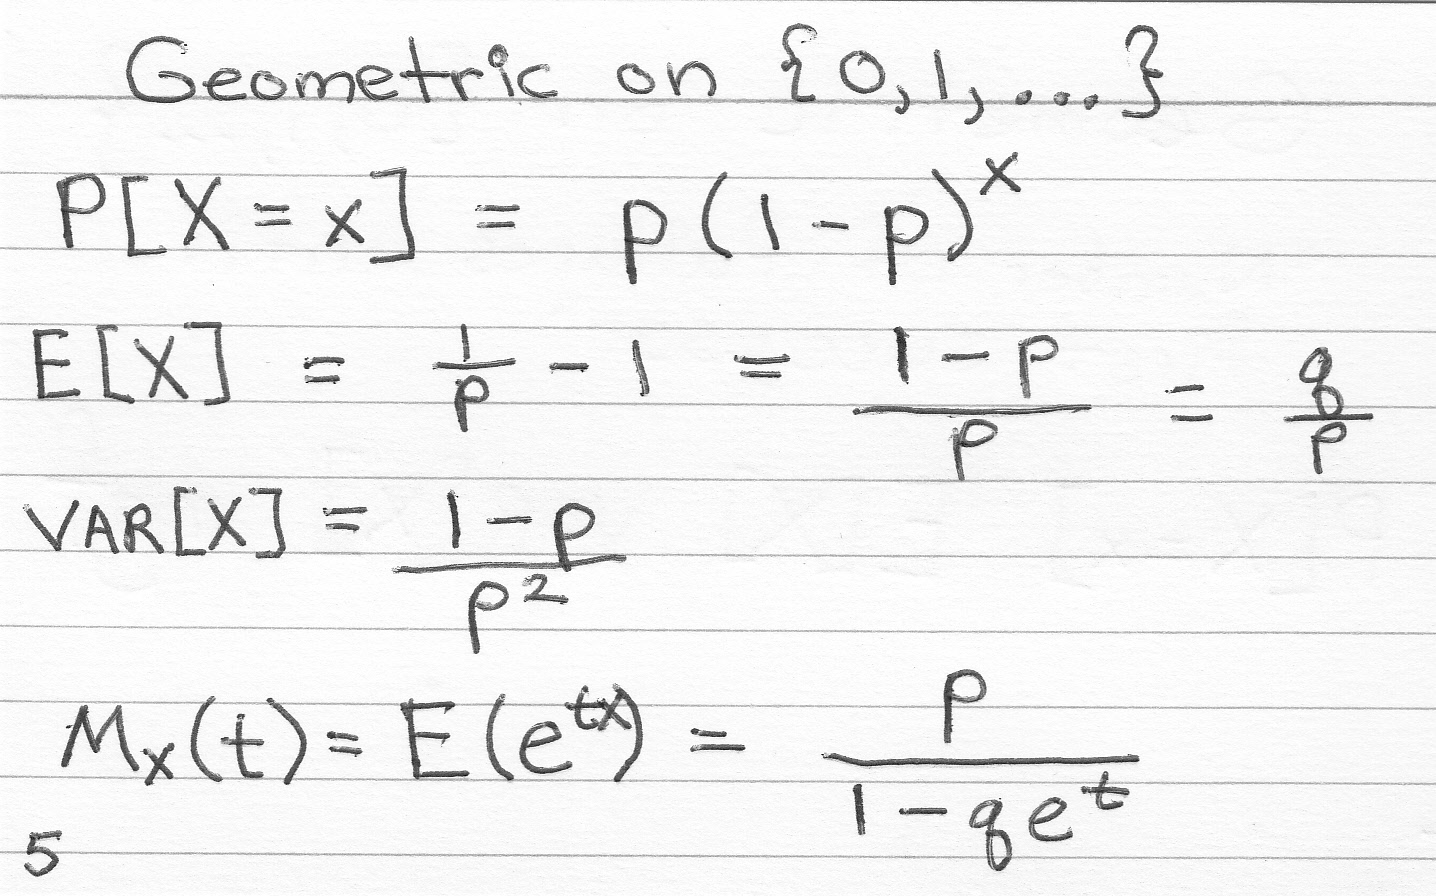 Geometric on {0,1,...}
P[X=x] = p(1-p)^x
E[X] = 1/p - 1 = (1-p)/p = q/p
VAR[X] = (1-p)/p^2
M_X(t) = E(e^{tx}) = p/(1-qe^t)
5